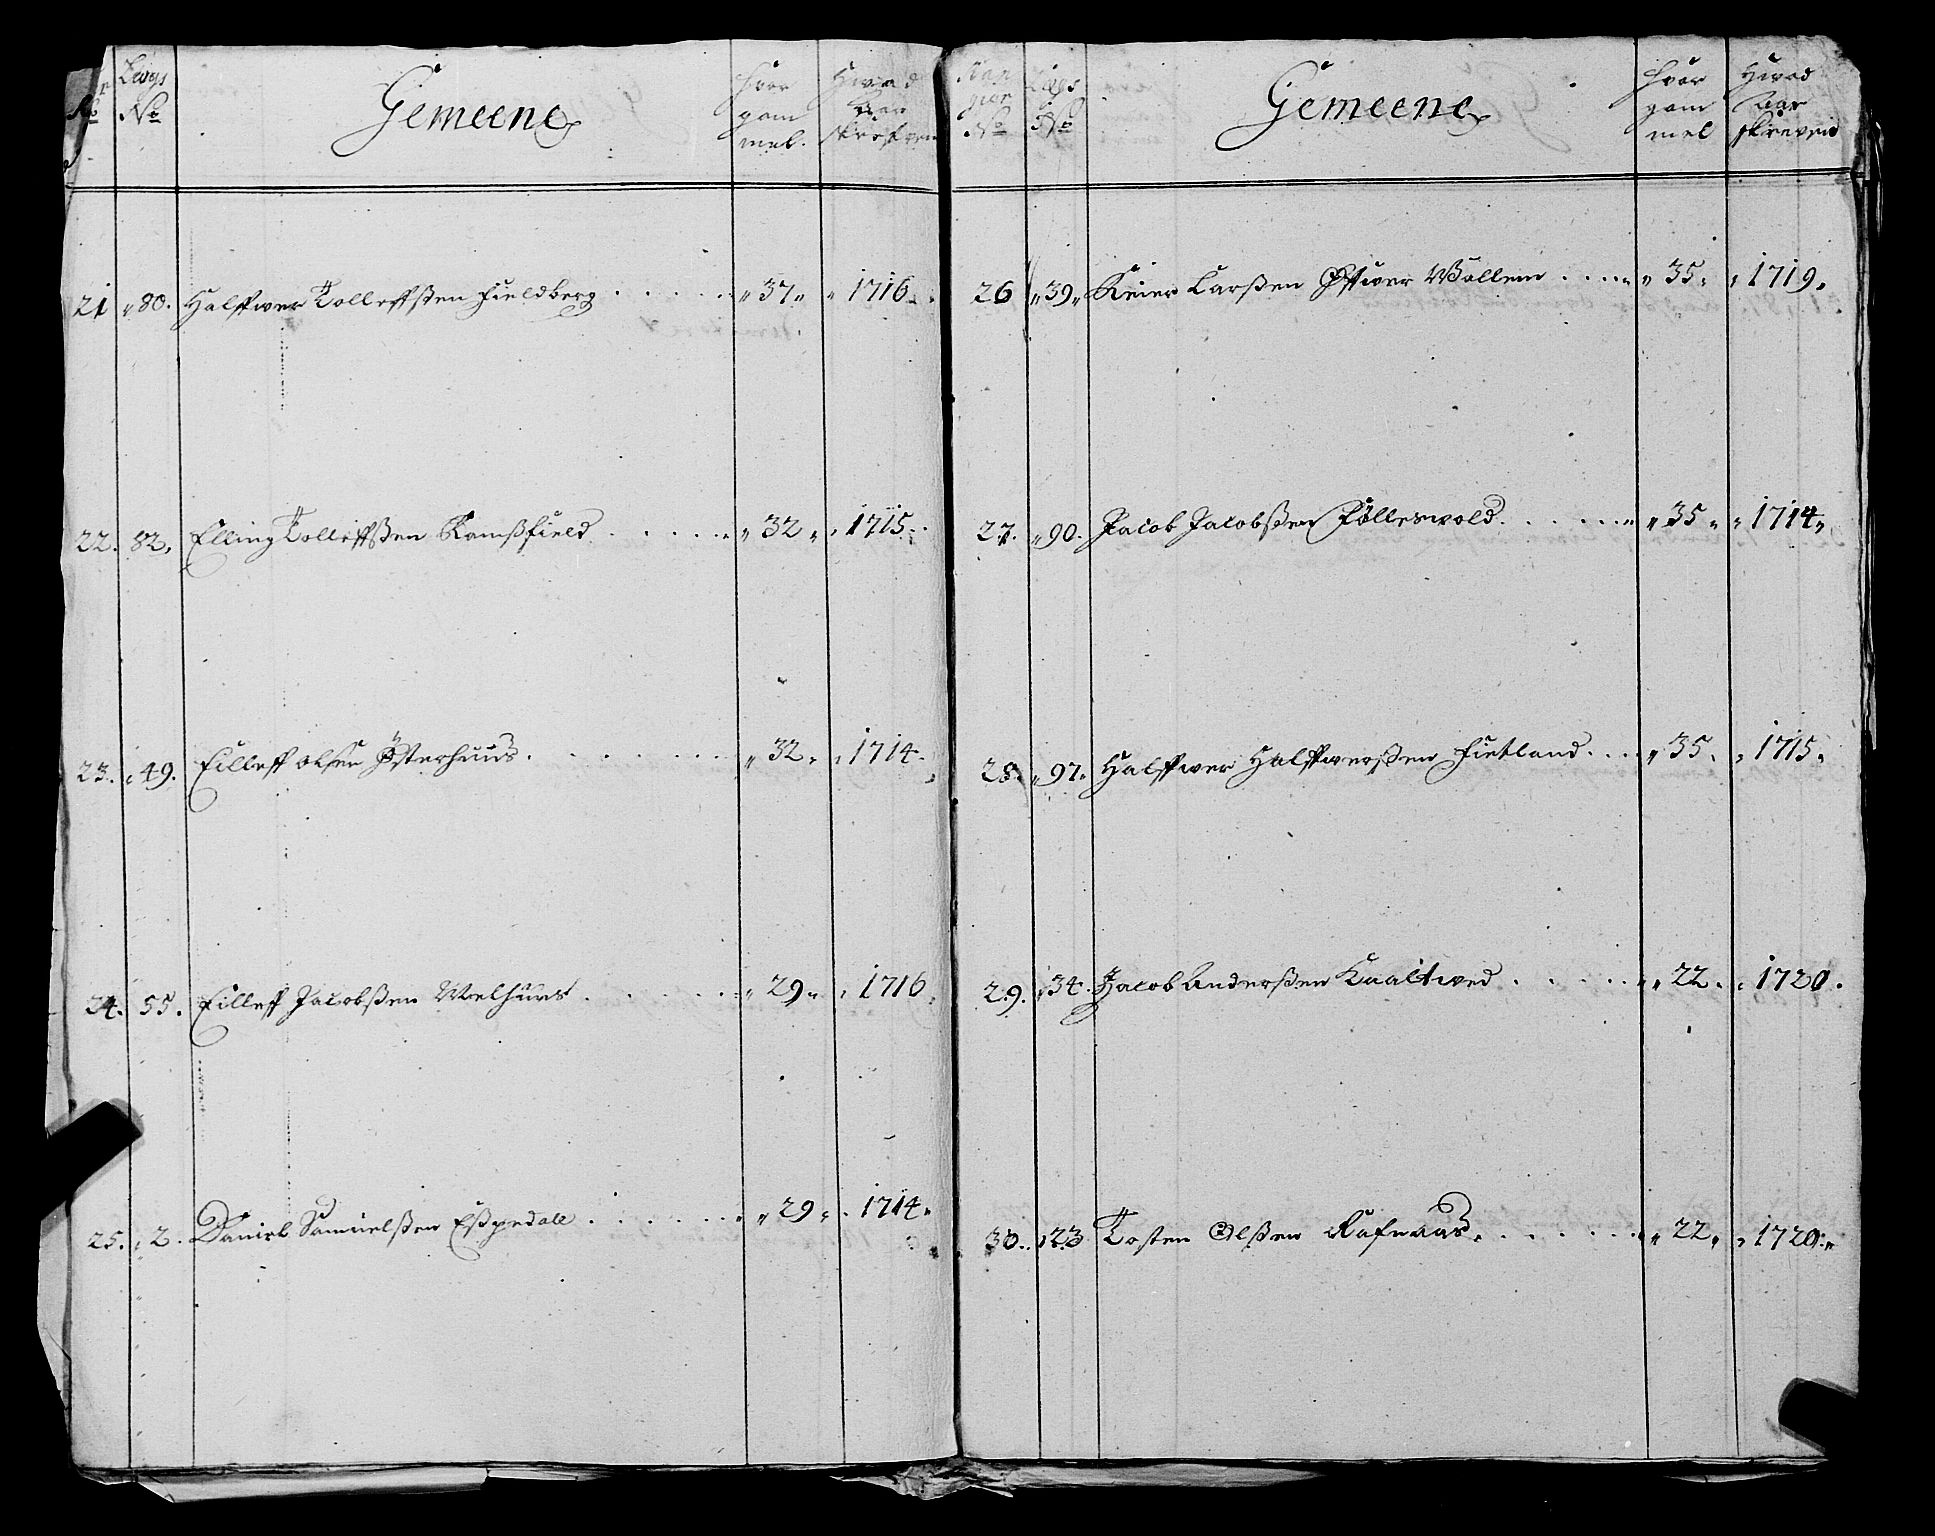 No
Lægs
No
Gemeene
Hvor
gam
mel.
Hwad
Aar
skrefven
21 80. Halffwer Tolleffsßen Fieldberg . . . . . 37 1716.
22. 82. Elling Tolleffsßen Ramßfield . . . . . 32 1715.
23. 49. Eilleff Olsen Østerhuus . . . . . . 32 1714.
24. 55. Eilleff Jacobsßen Melhuus . . . . . 29 1716
25. 2. Daniel Samuelsßen Eßpedall . . . . . . 29 1714
No
Lægs
No
Gemeene
Hvor
gam
mel
Hwad
Aar
skreven
26 39 Reier Larsßen Øfwer Vollem . . . . 35 1719.
27. 90. Jacob Jacobsßen Føllesvold . . . . . 35 1714
28. 97. Halffwer Halffwersßen Fietland . . . 35. 1715.
29. 34. Jacob Andersßen Kaaltwed . . . . . 22. 1720.
30. 123 Tosten Olsßen Rafnaas . . . . . . . 22. 1720.